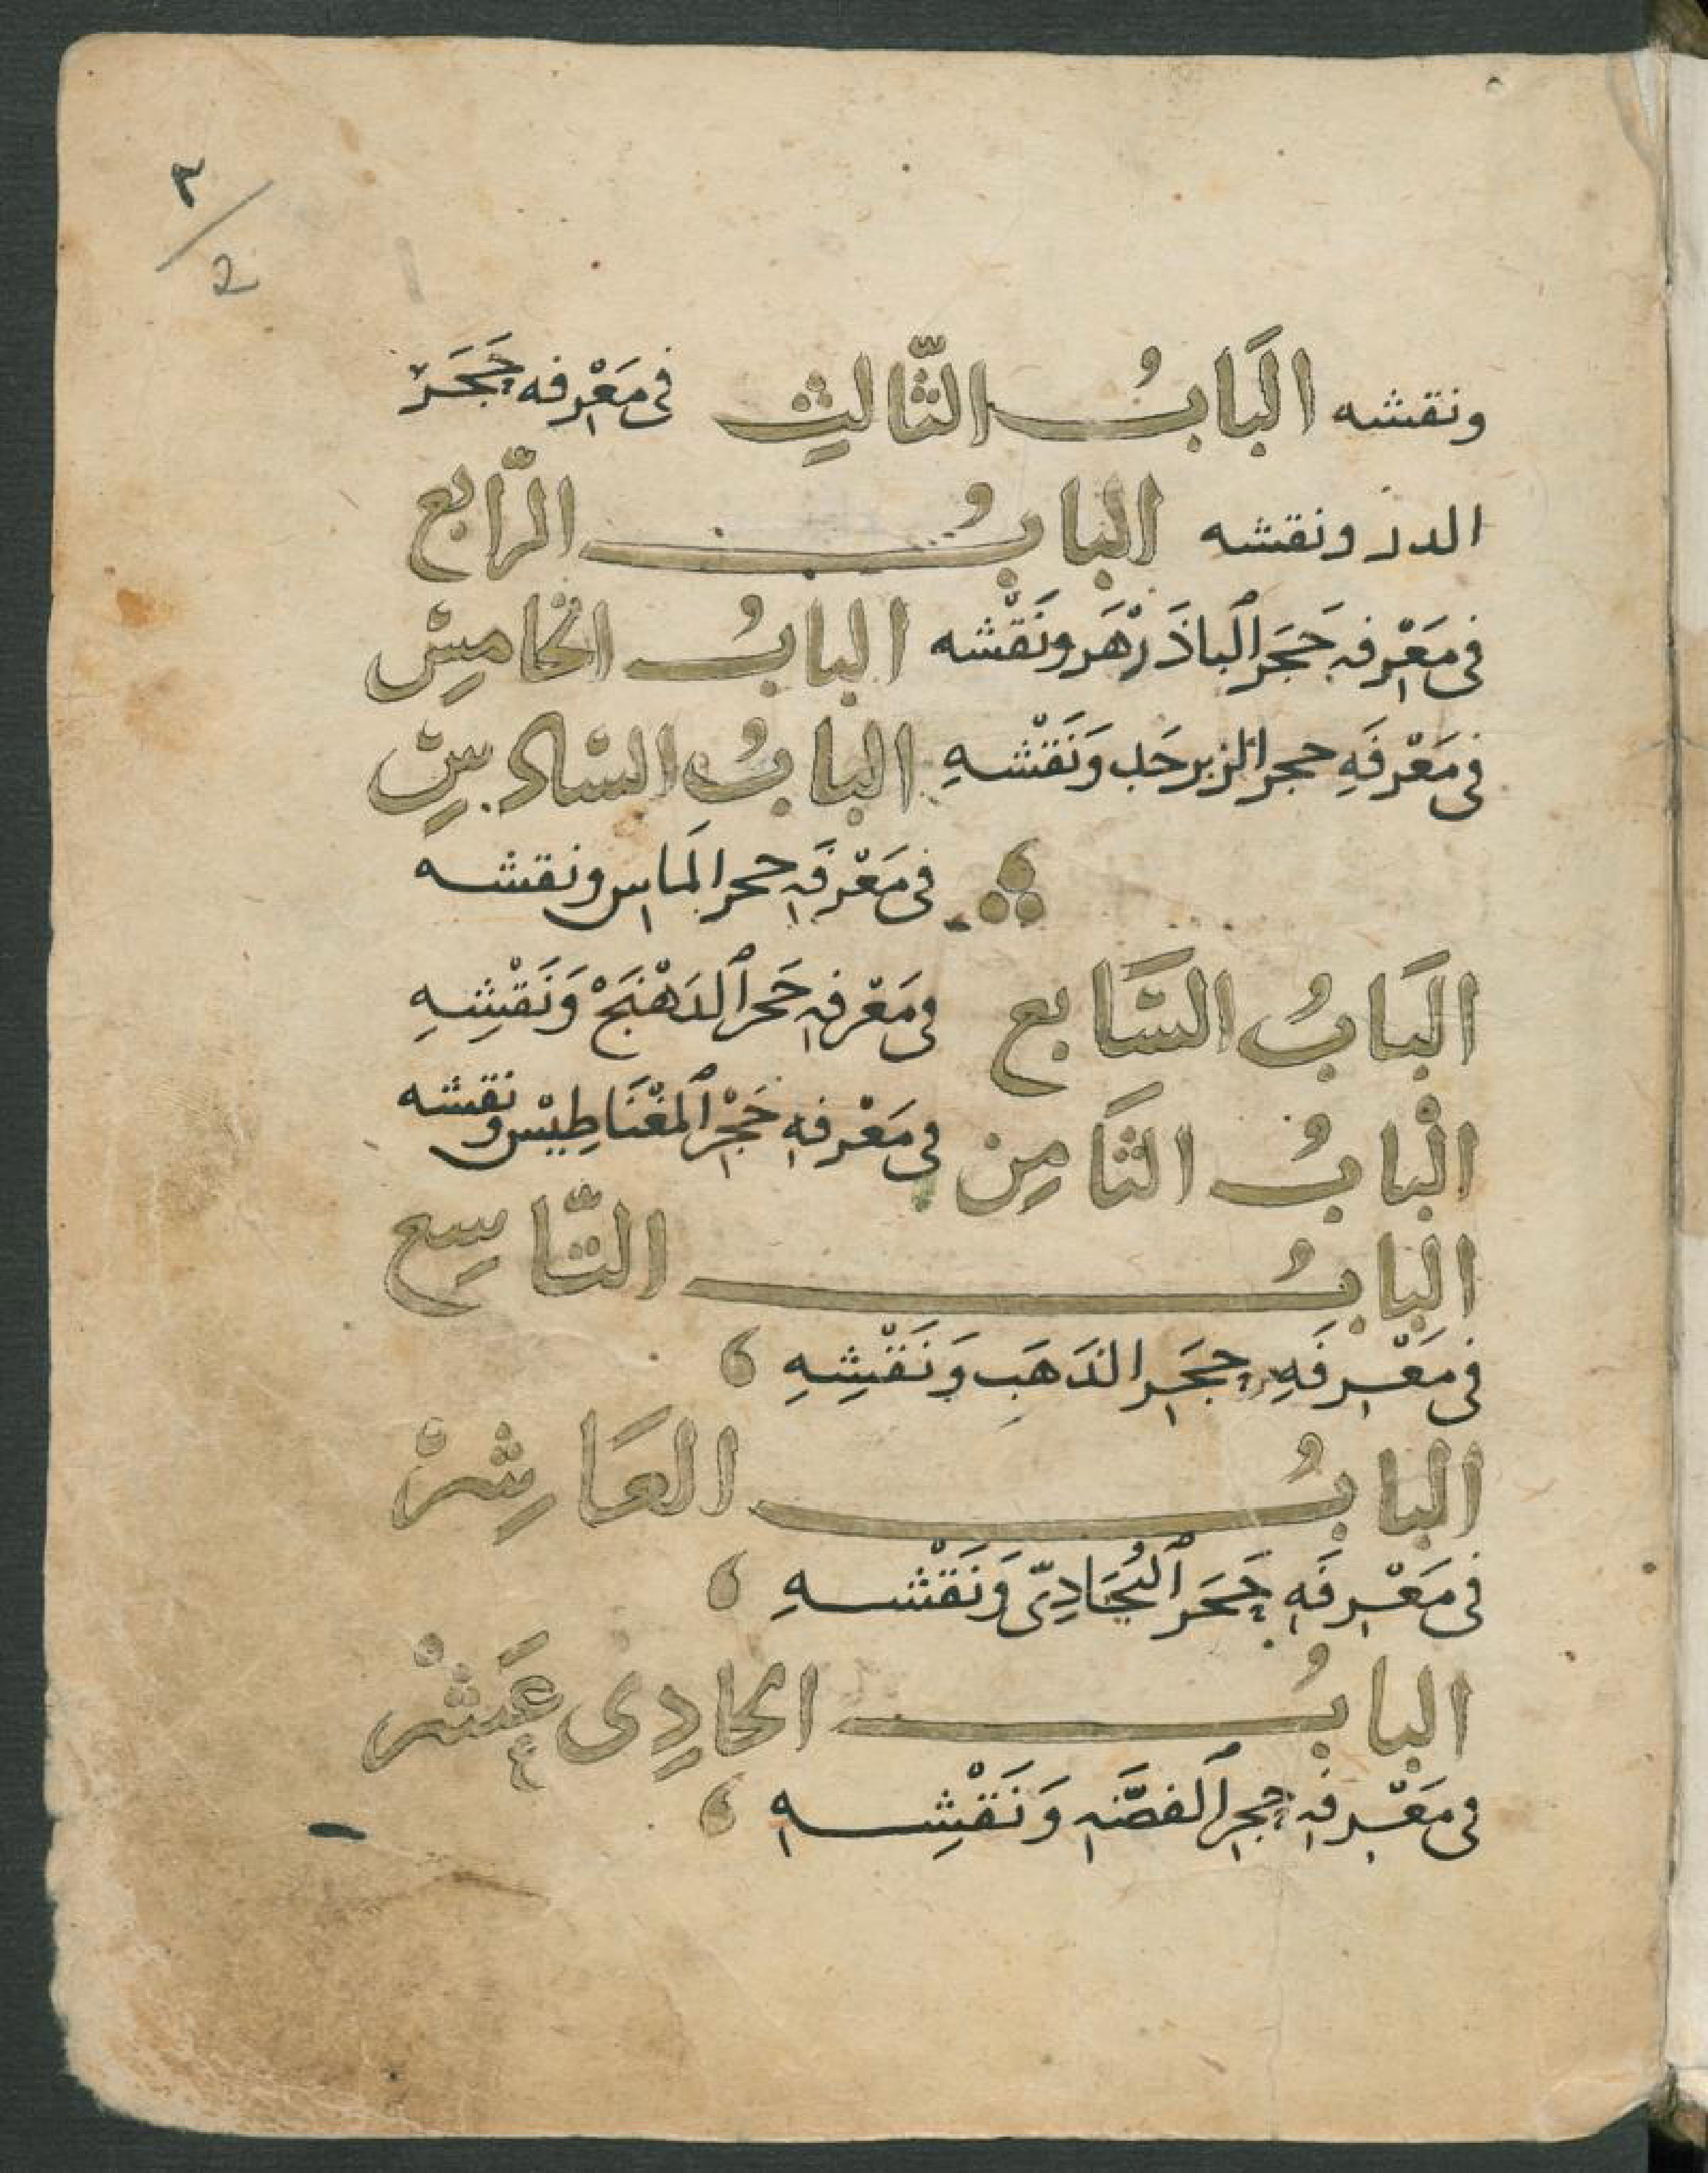 ٢
2
ونقشه البَابُ الثَّالثِ فى مَعْرفه حَجَر
الدر ونقشه البابُ الرَّابع
فى مَعْرفه حَجَر ٱلباذَزْهَر ونَقْشه البابُ الخامِسْ
فى مَعْرفَهِ حجر الزبرجد وَنَقْشهِ البابُ السْادسِ
فى مَعْرفَه حجر المَاس ونقشه
البَابُ السَّابع فى مَعْرفه حَجر ٱلدَهْنَجْ وَنَقْشِهِ
الْبابُ الثَامِن فى مَعْرفه حَجْر ٱلمَغْنَاطِيْس ونقشه
البابُ التَّاسِع
فى مَعْرفَهِ حجَر الذَهَب وَنَقْشِهِ
البابُ العَاشِرْ
فى مَعْرفَه حَجَر ٱلبُجَادِىّ وَنَقْشهِ
البابُ الحادِى عَشْرْ
فى مَعْرفه حجر ٱلفضَّه وَنَقْشِه